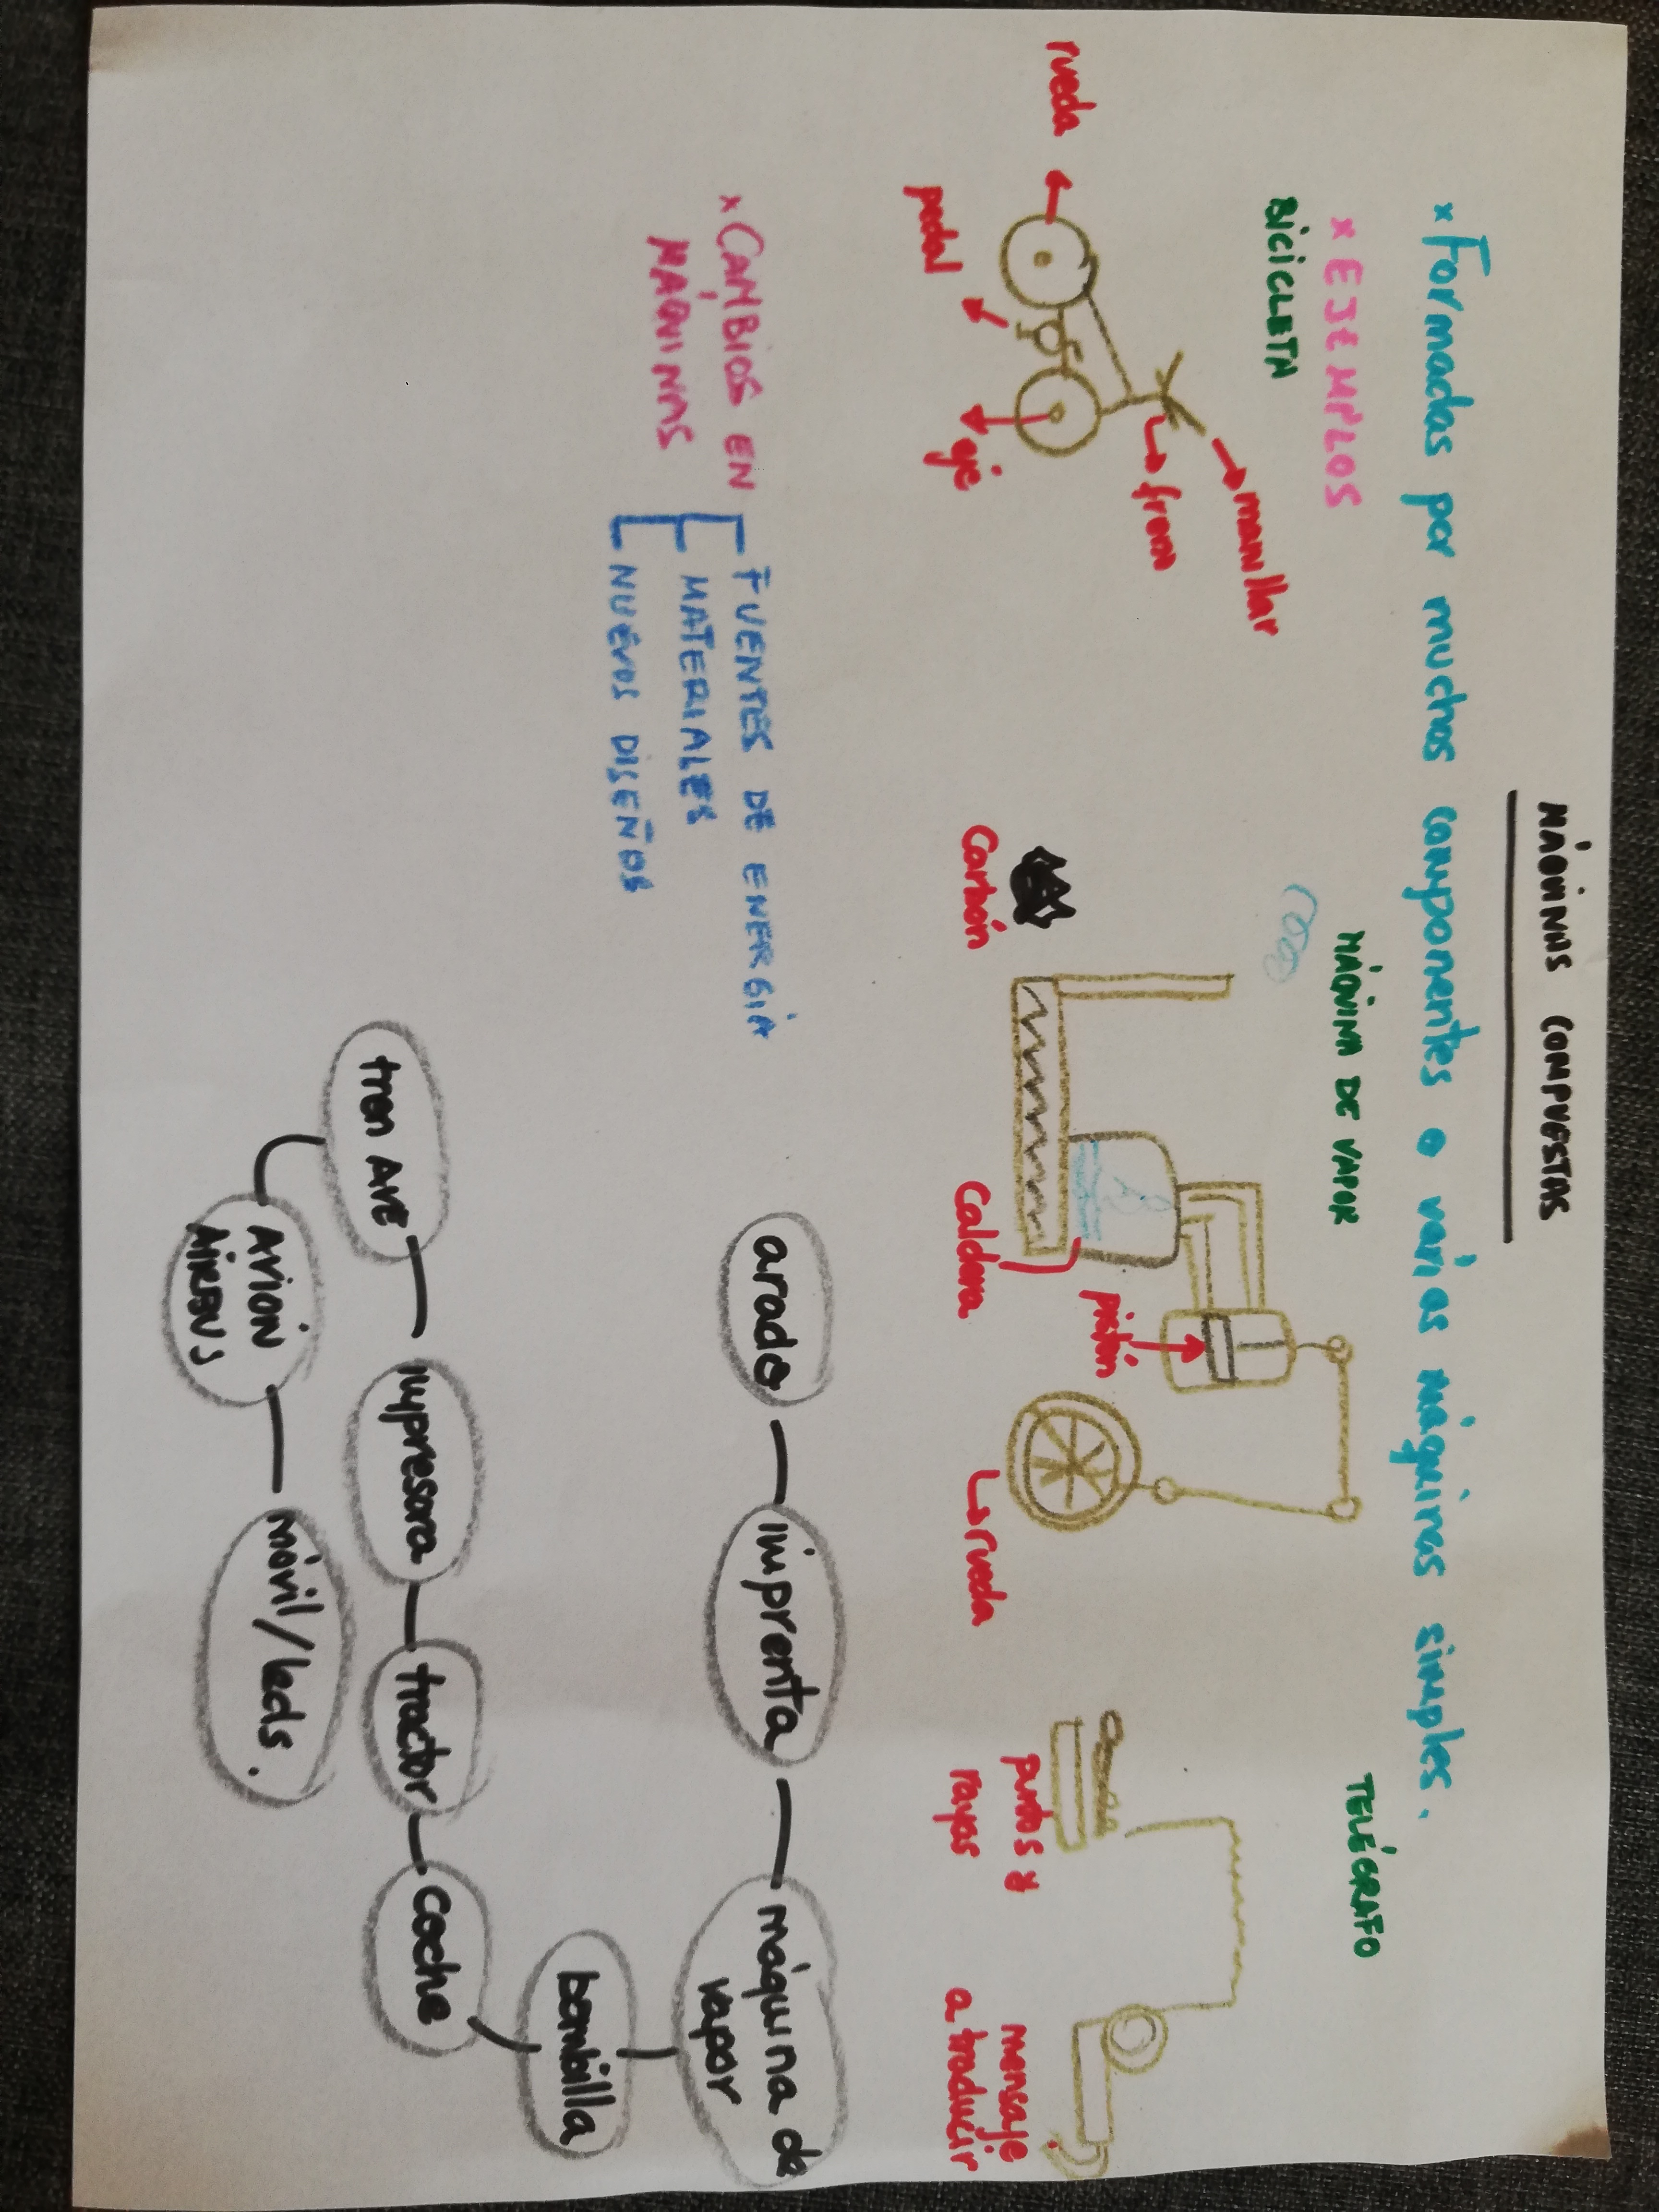 MÁQUINAS COMPUESTAS
x Formadas por muchos componentes o varias máquinas simples.
x EJEMPLOS
BICICLETA
MÁQUINA DE VAPOR
TELÉGRAFO
manillar
freno
rueda
pedal
eje
Carbón
Caldera
pistón
rueda
puntos y
rayas
mensaje
a traducir
x CAMBIOS EN
MÁQUINAS
FUENTES DE ENERGÍA
MATERIALES
NUEVOS DISEÑOS
arado
imprenta
máquina de
vapor
bombilla
coche
tractor
impresora
tren AVE
AVIÓN
AIRBUS
móvil/leds.